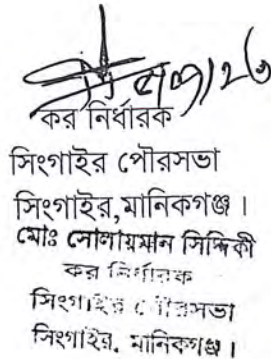 কর নির্ধারক
সিংগাইর পৌরসভা
সিংগাইর,মানিকগঞ্জ ।
মোঃ সোলায়মান সিদ্দিকী
কর নির্ধারক
সিংগাইর পৌরসভা
সিংগাইর, মানিকগঞ্জ ।